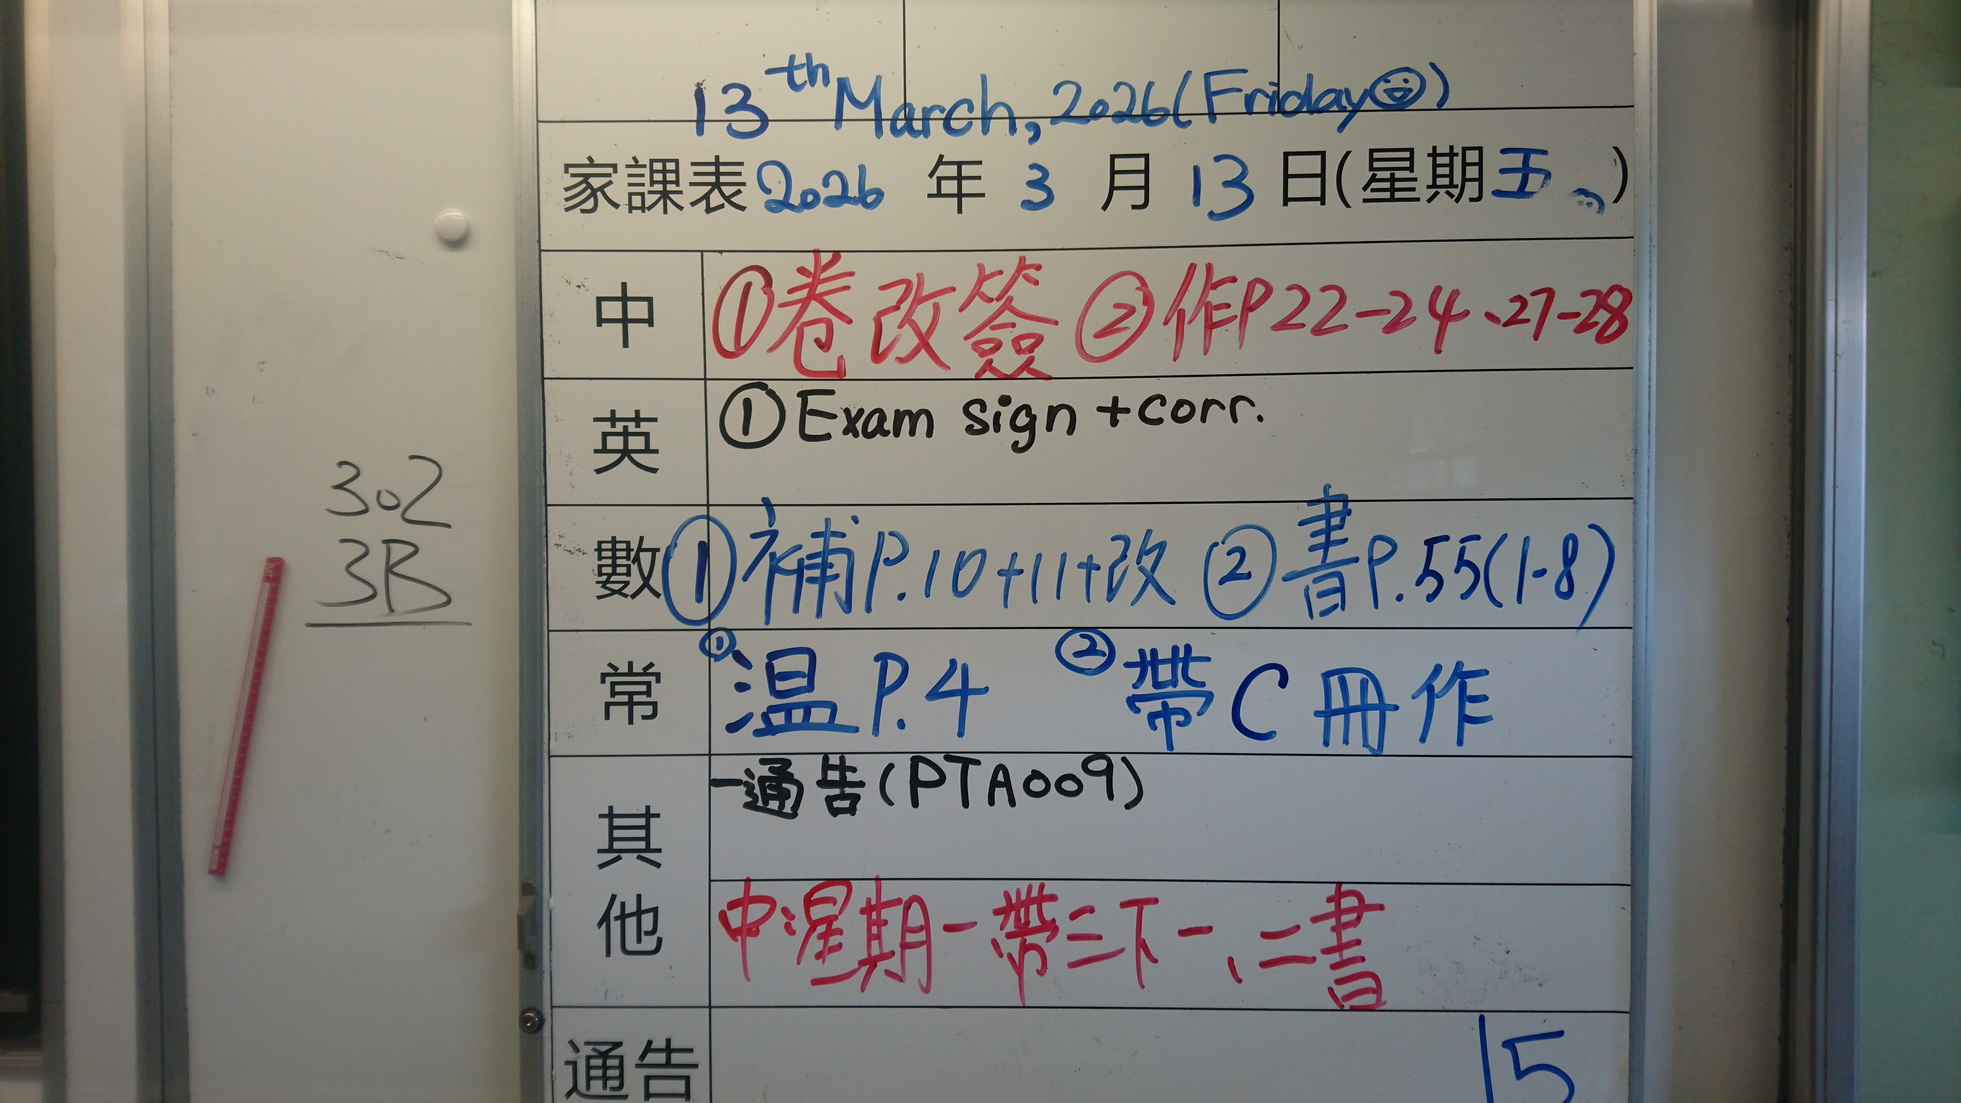 13th March, 2026 (Friday)
家課表 2026 年 3 月 13 日(星期五)
中 ①卷改簽 ②作P22-24、27-28
英 ①Exam sign + corr.
數 ①補P.10+11+改 ②書P.55(1-8)
常 ①温P.4 ②帶C冊作
其他 -通告(PTA009)
中星期一帶三下一、二書
通告 15
302
3B